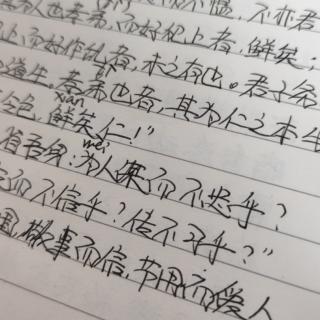 不愠,不亦君
其为人也孝弟,而好犯上者,鲜矣;
上,而好作乱者,未之有也。君子务
道生。孝弟也者,其为仁之本
xian
令色,鲜矣仁!"
wei
省吾身:为人谋而不忠乎?
而不信乎?传不习乎?"
国,敬事而信,节用而爱人